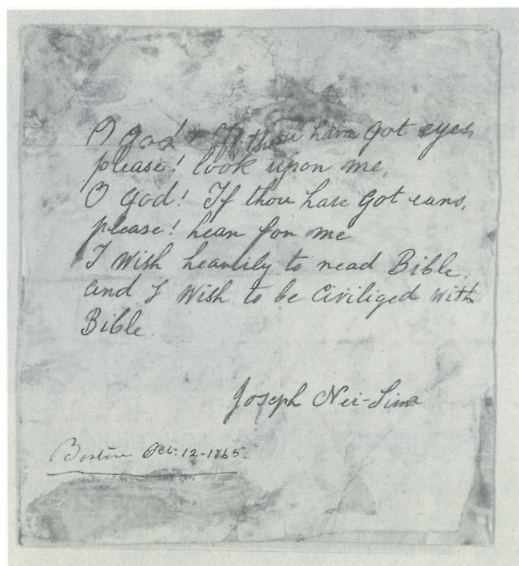 O god! If thou have got eyes
please! look upon me,
O God! If thou have Got ears,
please! hear for me
I Wish heartily to read Bible.
and I Wish to be Civiliged with
Bible.
Joseph Nei-Sima
Boston Oct. 12-1865.